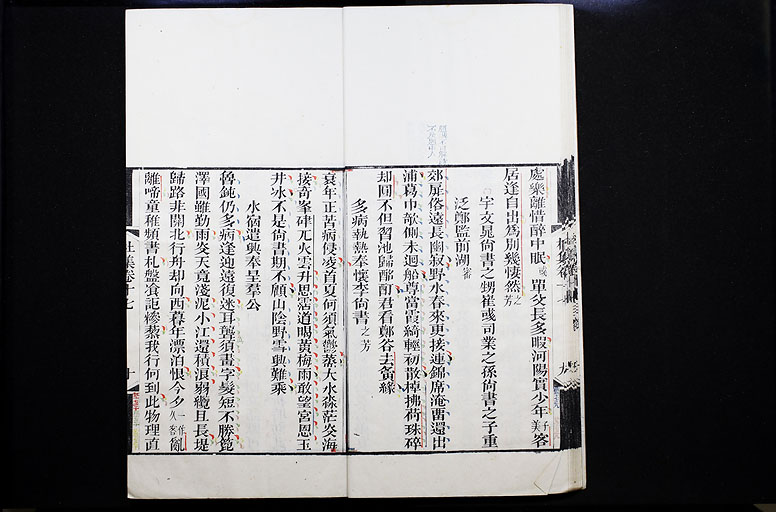 處樂離惜醉中眠或單父長多暇河陽實少年美子客
居逢自出為別幾悽然之芳
宇文晁尚書之甥崔彧司業之孫尚書之子重
泛鄭監前湖審
郊扉俗遠長幽寂野水春來更接連錦席淹畱還出
浦葛巾欹側未迴船尊當霞綺輕初散棹拂荷珠碎
却圓不但習池歸酩酊君看鄭谷去夤緣
多病執熱奉懷李尚書之芳
衰年正苦病侵凌首夏何須氣鬱蒸大水淼茫炎海
接奇峯硉兀火雲升思霑道暍黃梅雨敢望宮恩玉
井冰不是尚書期不顧山陰野雪興難乘
水宿遣興奉呈羣公
魯鈍仍多病逢迎遠復迷耳聾須畫字髮短不勝篦
澤國雖勤雨炎天竟淺泥小江還積浪弱纜且長堤
歸路非關北行舟却向西暮年漂泊恨今夕一作久客亂
離啼童稚頻書札盤飱詎糝藜我行何到此物理直
杜集卷十七
十
九